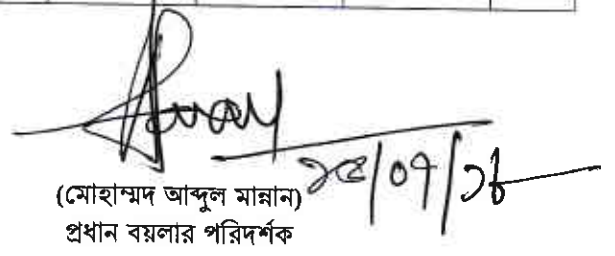 ২৫/০৭/১৮
(মোহাম্মদ আব্দুল মান্নান)
প্রধান বয়লার পরিদর্শক